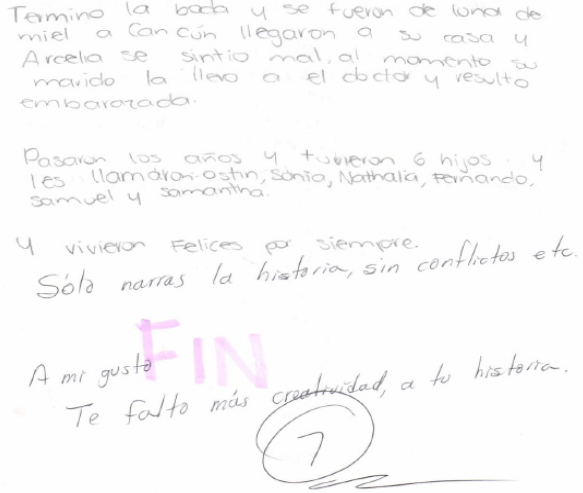 Termino la boda y se fueron de luna de
miel a Can cún llegaron a su casa y
Arcelia se sintio mal, al momento su
marido la llevo a el doctor y resulto
embarazada.
Pasaron los años y tuvieron 6 hijos y
les llamaron: Ostin, Sonia, Nathalia, Fernando,
Samuel y Samantha.
Y vivieron Felices por siempre.
Sólo narras la historia, sin conflictos etc.
FIN
A mi gusto
Te falto más creatividad, a tu historia.
7